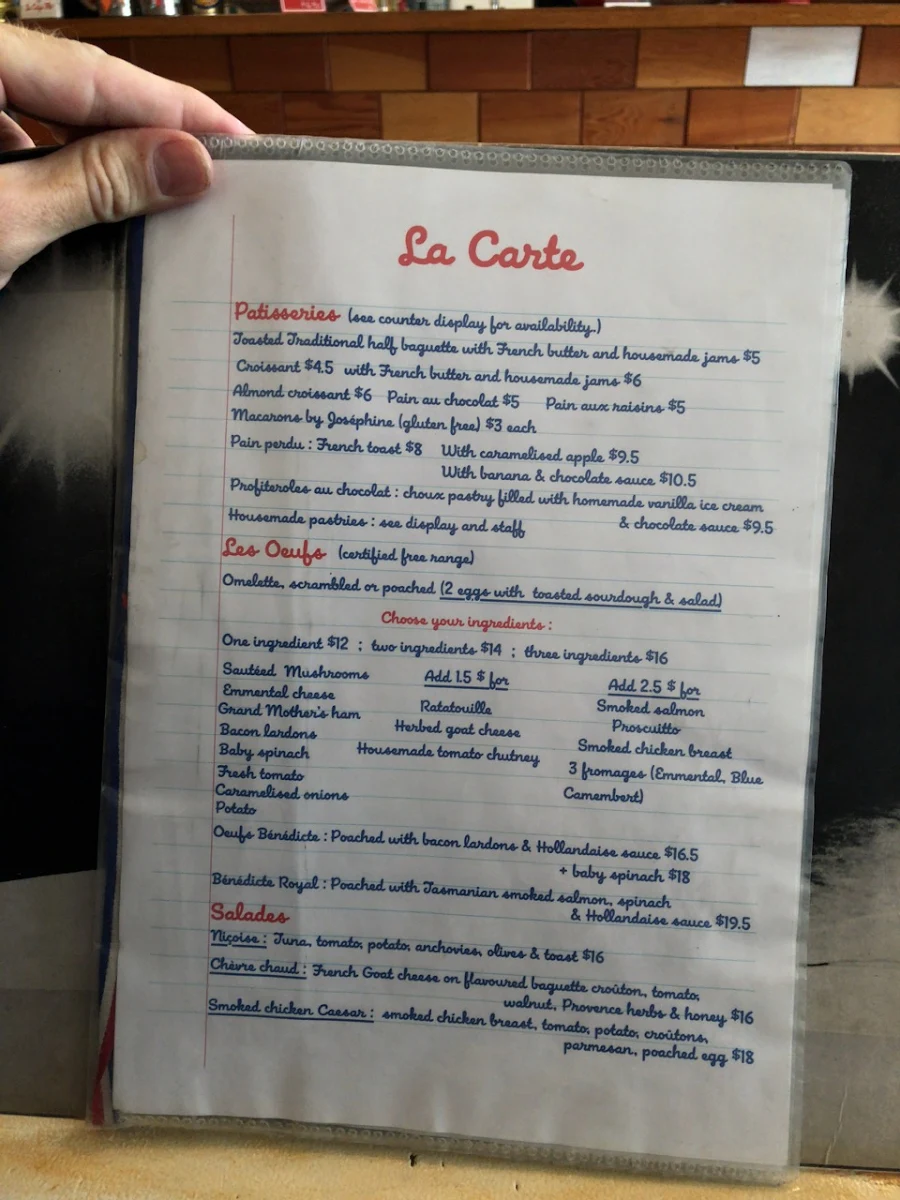 La Carte
Patisseries (see counter display for availability.)
Toasted Traditional half baguette with French butter and housemade jams $5
Croissant $4.5 with French butter and housemade jams $6
Almond croissant $6 Pain au chocolat $5 Pain aux raisins $5
Macarons by Joséphine (gluten free) $3 each
Pain perdu : French toast $8 With caramelised apple $9.5
With banana & chocolate sauce $10.5
Profiteroles au chocolat : choux pastry filled with homemade vanilla ice cream
& chocolate sauce $9.5
Housemade pastries : see display and staff
Les Oeufs (certified free range)
Omelette, scrambled or poached (2 eggs with toasted sourdough & salad)
Choose your ingredients :
One ingredient $12 ; two ingredients $14 ; three ingredients $16
Sautéed Mushrooms
Emmental cheese
Grand Mother's ham
Bacon lardons
Baby spinach
Fresh tomato
Caramelised onions
Potato
Add 1.5 $ for
Ratatouille
Herbed goat cheese
Housemade tomato chutney
Add 2.5 $ for
Smoked salmon
Proscuitto
Smoked chicken breast
3 fromages (Emmental, Blue
Camembert)
Oeufs Bénédicte : Poached with bacon lardons & Hollandaise sauce $16.5
+ baby spinach $18
Bénédicte Royal : Poached with Tasmanian smoked salmon, spinach
& Hollandaise sauce $19.5
Salades
Niçoise : Tuna, tomato, potato, anchovies, olives & toast $16
Chèvre chaud : French Goat cheese on flavoured baguette croûton, tomato,
walnut, Provence herbs & honey $16
Smoked chicken Caesar : smoked chicken breast, tomato, potato, croûtons,
parmesan, poached egg $18